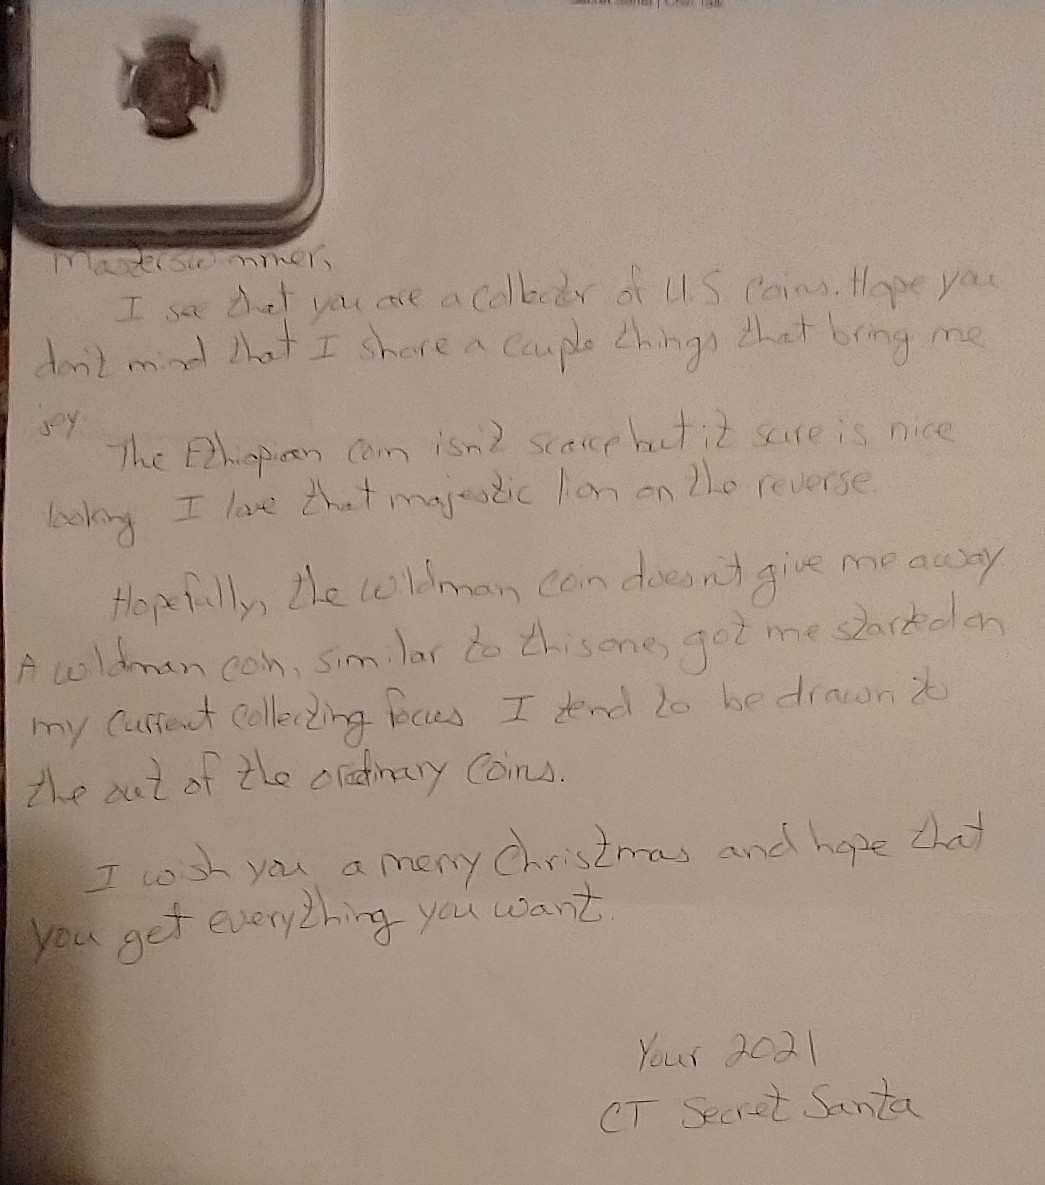 Masterswimmer,
I see that you are a collector of U.S coins. Hope you
don't mind that I share a couple things that bring me
joy.
The Ethiopian coin isn't scarce but it sure is nice
looking I love that majestic lion on the reverse.
Hopefully, the wildman coin doesn't give me away
A wildman coin, similar to this one, got me started on
my current collecting focus I tend to be drawn to
the out of the ordinary coins.
I wish you a merry Christmas and hope that
you get everything you want.
Your 2021
CT Secret Santa